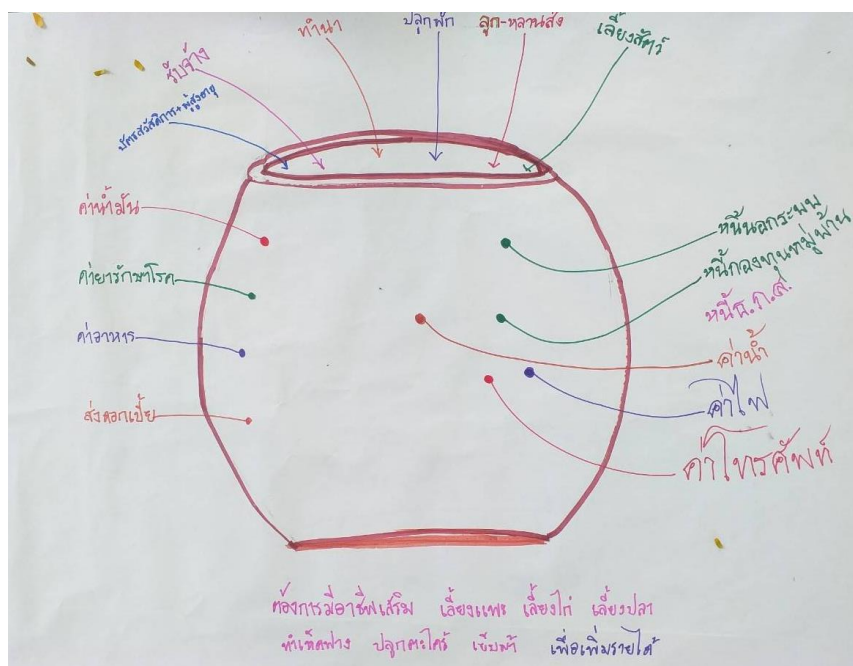 บัตรสวัสดิการ+ผู้สูงอายุ
รับจ้าง
ทำนา
ปลูกผัก
ลูก-หลานส่ง
เลี้ยงสัตว์
ค่าน้ำมัน
ค่ายารักษาโรค
ค่าอาหาร
ส่งดอกเบี้ย
หนี้นอกระบบ
หนี้กองทุนหมู่บ้าน
หนี้ธ.ก.ส.
ค่าน้ำ
ค่าไฟ
ค่าโทรศัพท์
ต้องการมีอาชีพเสริม เลี้ยงแพะ เลี้ยงไก่ เลี้ยงปลา
ทำเห็ดฟาง ปลูกตะไคร้ เย็บผ้า เพื่อเพิ่มรายได้